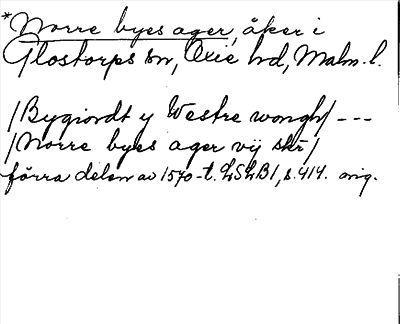 *Norre byes ager, åker i
Glostorps sn, Oxie hd, Malm. l.
/Bygiordt y Westre wongh/ ---
/Norre byes ager vij skr/
förra delen av 1570-t. LSLB1, s. 414. orig.